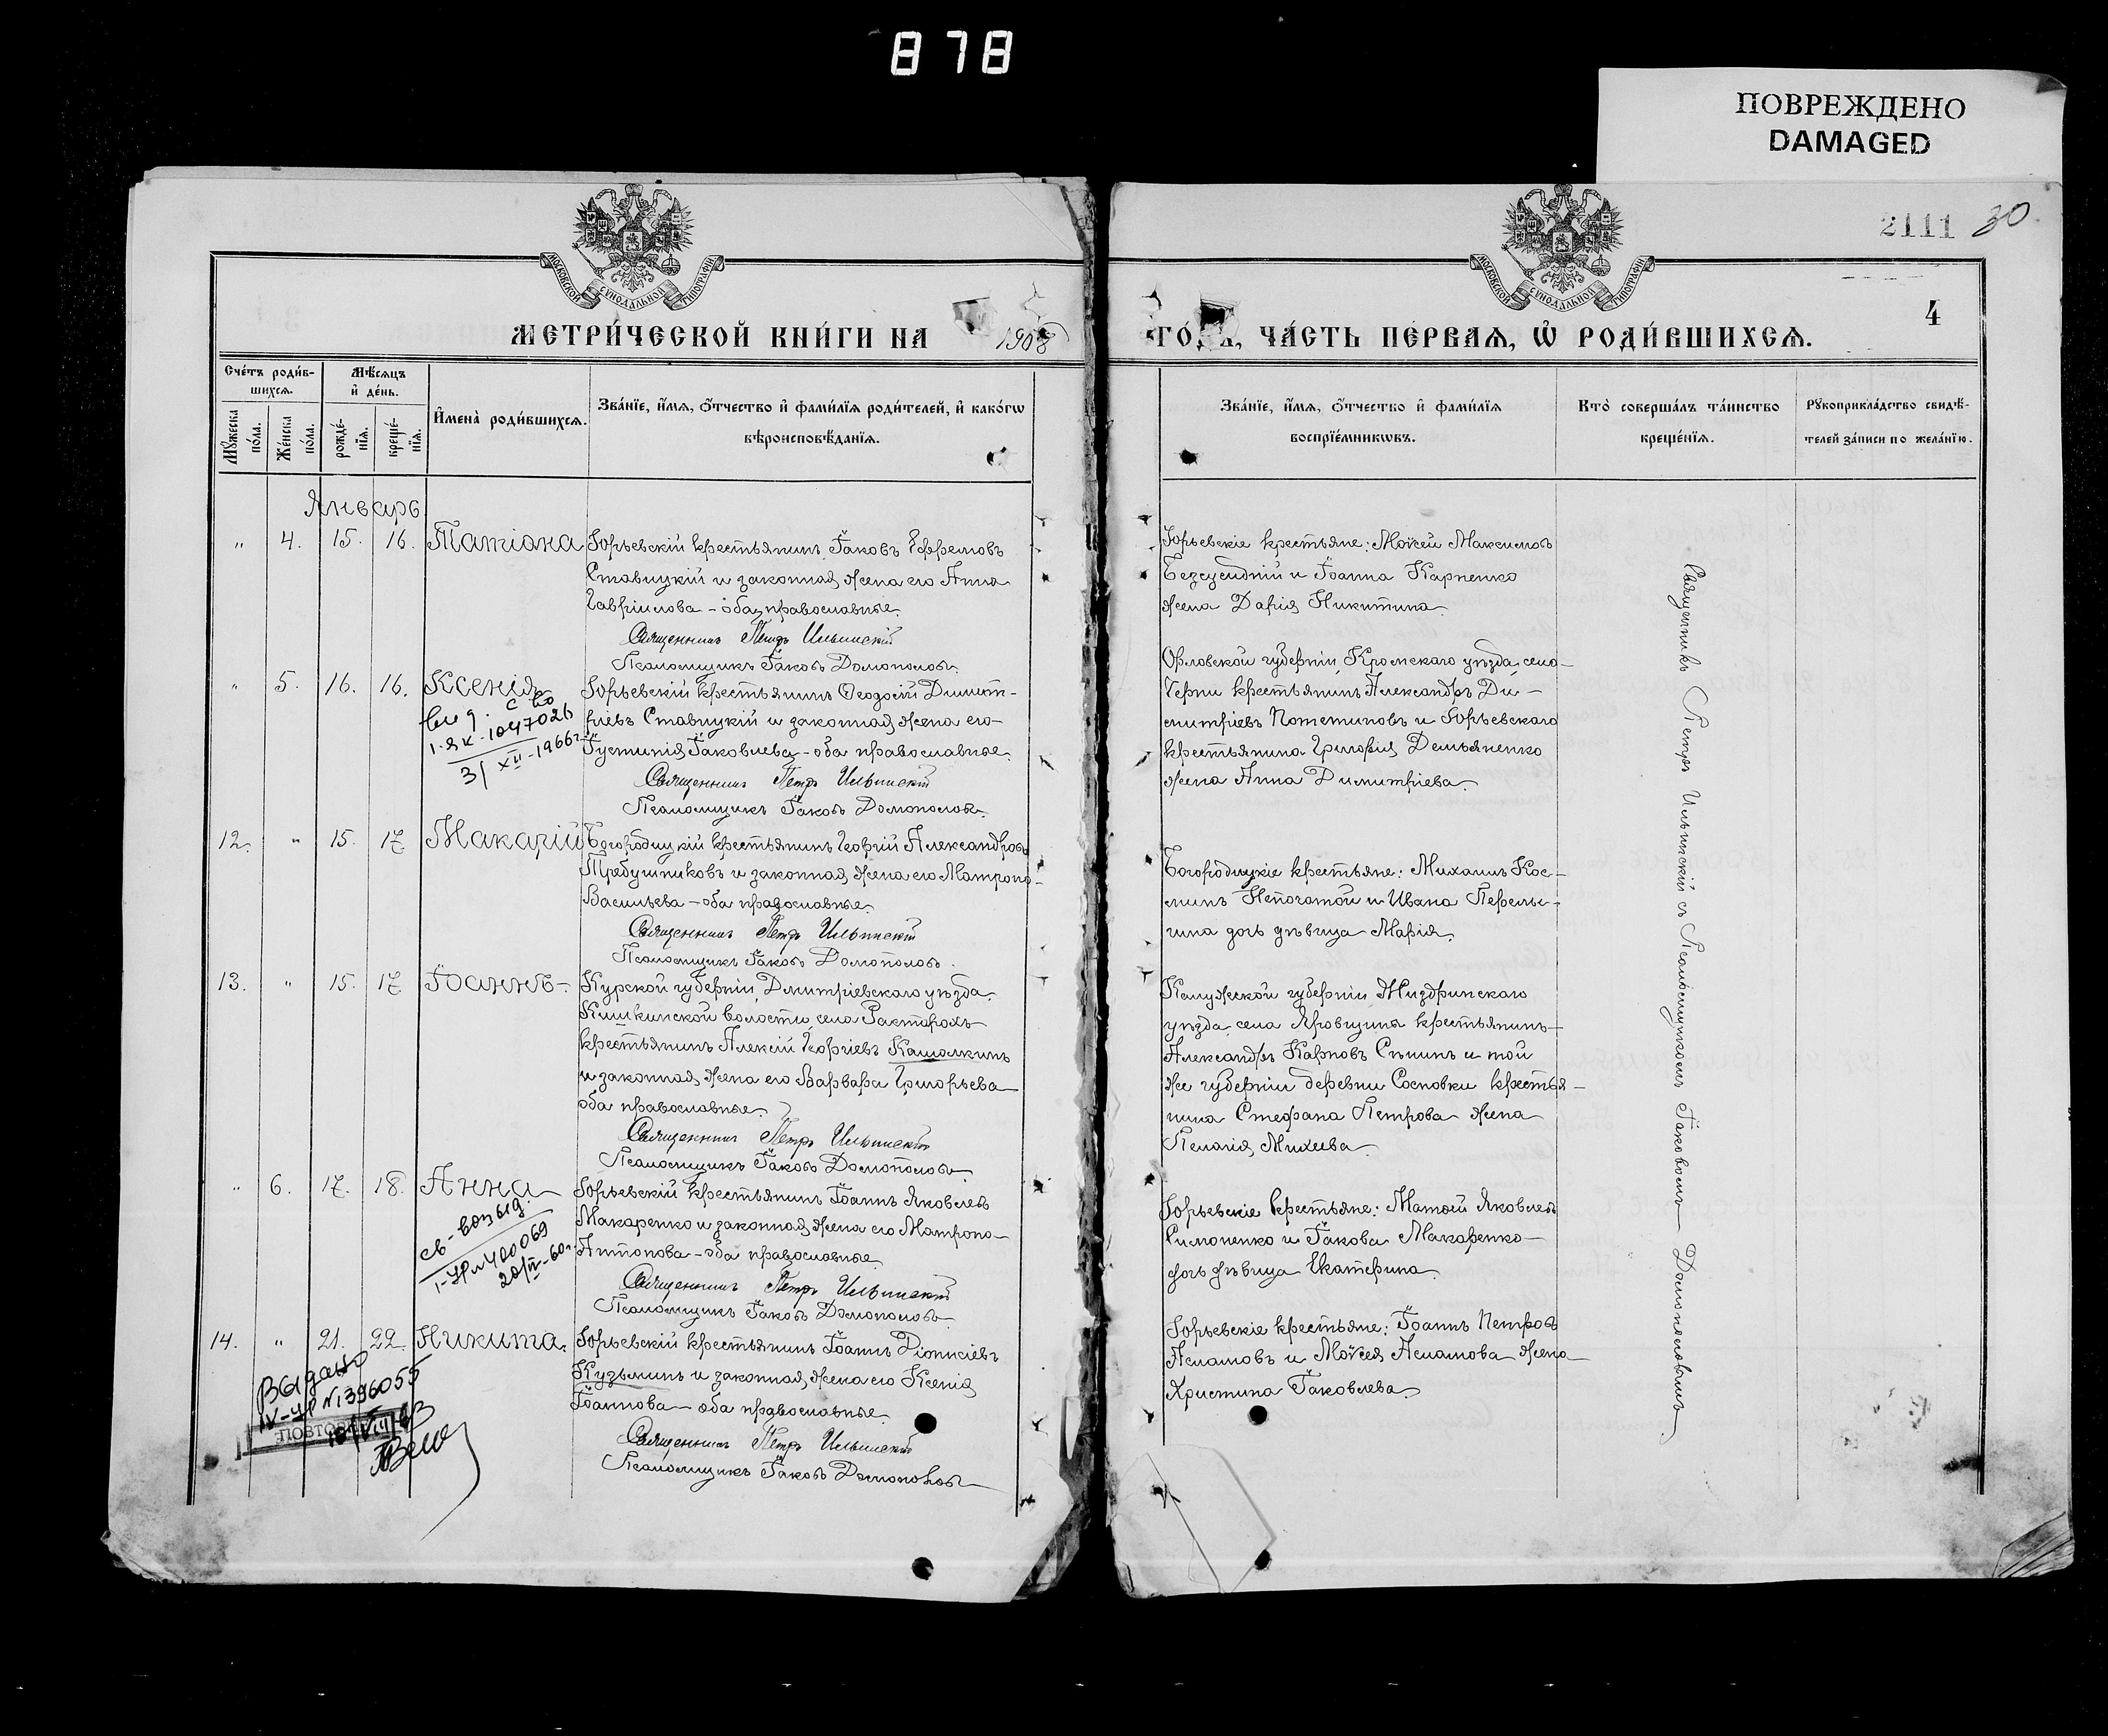 878
ПОВРЕЖДЕНО
DAMAGED
2111 30
МОСКОВСКОЙ СѴНОДАЛЬНОЙ ТИПОГРАФІИ
МОСКОВСКОЙ СѴНОДАЛЬНОЙ ТИПОГРАФІИ
4
МЕТРИ́ЧЕСКОЙ КНИ́ГИ НА 1908
ГО́ ЧА́СТЬ ПЕ́РВАѦ, Ѡ҆ РОДИ́ВШИХСѦ.
Сче́тъ роди́в-
шихсѧ.
Мꙋ́жеска по́ла.
Же́нска по́ла.
Мѣ́сѧцъ
и҆ де́нь.
рожде́-нїѧ.
креще́-нїѧ.
И҆мена̀ роди́вшихсѧ.
Зва́нїе, и҆́мѧ, ѻ҆́тчество и҆ фами́лїѧ роди́телей, и҆ како́гѡ
вѣроисповѣ́данїѧ.
Зва́нїе, и҆́мѧ, ѻ҆́тчество и҆ фами́лїѧ
воспрїе́мникѡвъ.
Кто̀ соверша́лъ та́инство
креще́нїѧ.
Рꙋкоприкла́дство свидѣ́-
телей за́писи по жела́нїю.
Январь
" 4. 15. 16. Татіана
Юрьевскій крестьянинъ Іаковъ Ефремовъ
Ставицкій и законная жена его Анна
Гавріилова – оба православные.
Священникъ Петръ Ильинскій
Псаломщикъ Іаковъ Домополовъ.
Юрьевскіе крестьяне: Моѵсей Максимовъ
и Іоанна Карпенко
жена Дарія Никитина.
" 5. 16. 16. Ксенія
выд. с во
I-ЯК-1047026
31/XII-1966г.
Юрьевскій крестьянинъ Ѳеодосій Димит-
ріевъ Ставицкій и законная жена его
Іустинія Іаковлева – оба православные.
Священникъ Петръ Ильинскій
Псаломщикъ Іаковъ Домополовъ.
Орловской губерніи, Кромскаго уѣзда, село
Черни крестьянинъ Александръ Ди-
митріевъ Потетиновъ и Юрьевскаго
крестьянина Григорія Демьяненко
жена Анна Димитріева.
12. " 15. 17 Макарій
Богородицкій крестьянинъ Георгій Александровъ
Требушниковъ и законная жена его Матрона
Васильева – оба православные.
Священникъ Петръ Ильинскій
Псаломщикъ Іаковъ Домополовъ.
Богородицкіе крестьяне: Михаилъ Кос-
минъ Непочатой и Ивана Перелы-
гина дочь дѣвица Марія.
13. " 15. 17 Іоаннъ.
Курской губерніи, Дмитріевскаго уѣзда,
Кишкинской волости, села Расторохъ
крестьянинъ Алексій Георгіевъ Кашалкинъ
и законная жена его Варвара Григорьева
оба православные.
Священникъ Петръ Ильинскій
Псаломщикъ Іаковъ Домополовъ.
Калужской губерніи, Жиздринскаго
уѣзда, села Яровщина крестьянинъ
Александръ Карповъ Спинъ и той
же губерніи деревни Сосновки крестья-
нина Стефана Петрова жена
Пелагія Михеева.
" 6. 17. 18. Анна
св-во выд.
I-УР №400069
20/IV-60г.
Юрьевскій крестьянинъ Іоаннъ Яковлевъ
Макаренко и законная жена его Матрона
Антонова – оба православные.
Священникъ Петръ Ильинскій
Псаломщикъ Іаковъ Домополовъ.
Юрьевскіе крестьяне: Матѳей Яковлевъ
Симоненко и Іакова Макаренко
дочь дѣвица Екатерина.
14. " 21. 22. Никита.
Выдано
IV-УР №1396055
ПОВТОРНО
Юрьевскій крестьянинъ Іоаннъ Діонисіевъ
Кузьминъ и законная жена его Ксенія
Іоаннова – оба православные.
Священникъ Петръ Ильинскій
Псаломщикъ Іаковъ Домополовъ
Юрьевскіе крестьяне: Іоаннъ Петровъ
Асламовъ и Моѵсея Асламова жена
Христина Іаковлева.
Священникъ Петръ Ильинскій съ Псаломщикомъ Іаковомъ Домополовымъ.